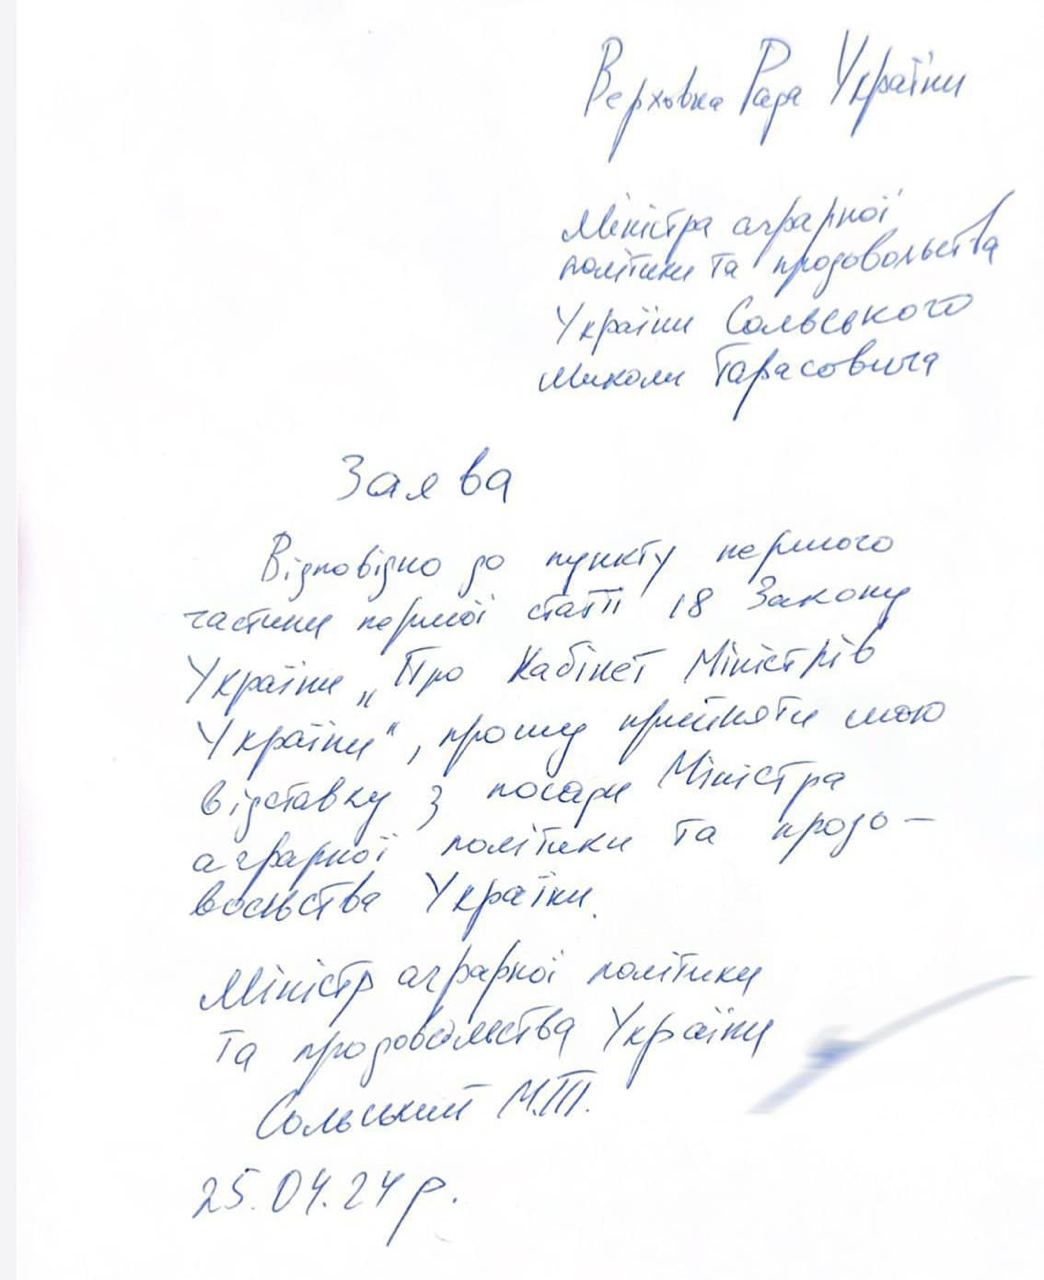 Верховна Рада України
Міністра аграрної
політики та продовольства
України Сольського
Миколи Тарасовича
Заява
Відповідно до пункту першого
частини першої статті 18 Закону
України „Про Кабінет Міністрів
України", прошу прийняти мою
відставку з посади Міністра
аграрної політики та продо-
вольства України.
Міністр аграрної політики
та продовольства України
Сольський М.Т.
25.04.24 р.